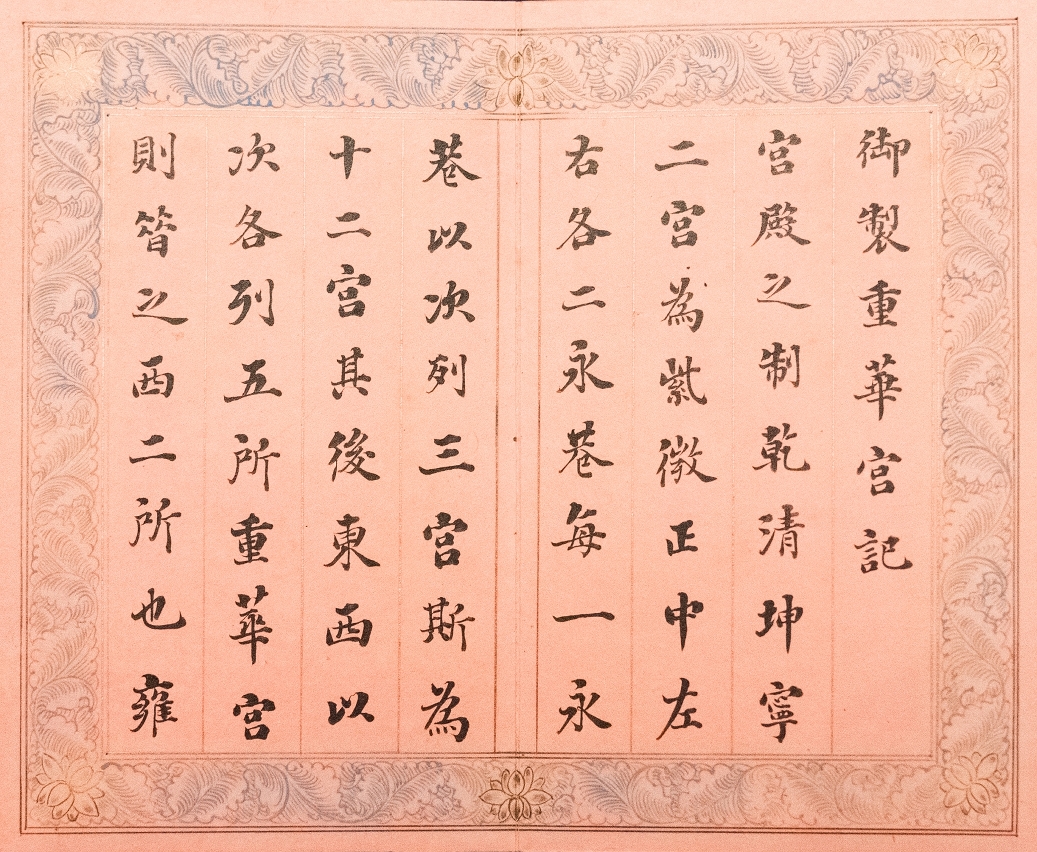 御製重華宮記
宮殿之制乾清坤寧
二宮為紫微正中左
右各二永巷每一永
巷以次列三宮斯為
十二宮其後東西以
次各列五所重華宮
則昝之西二所也雍